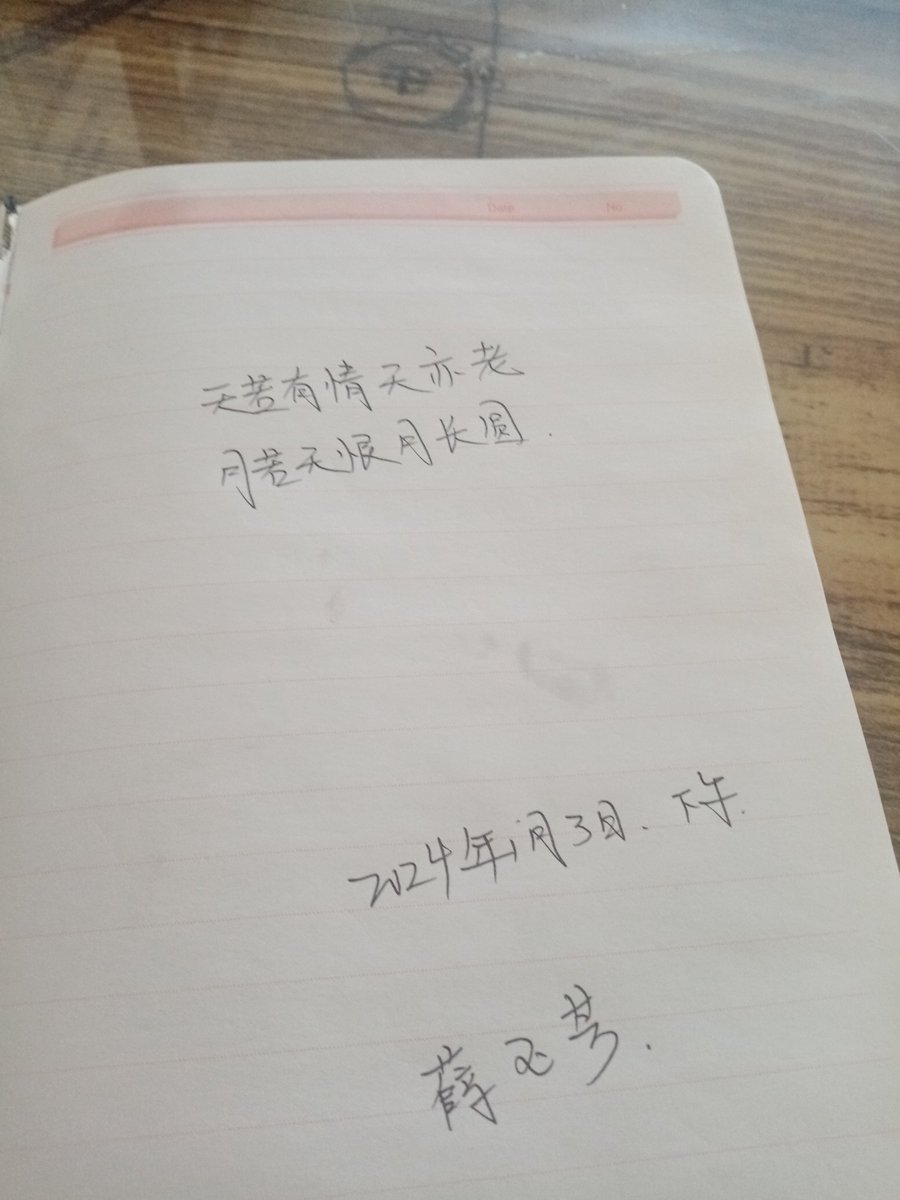 Date No.
天若有情天亦老
月若无恨月长圆.
2024年1月3日. 下午.
薛